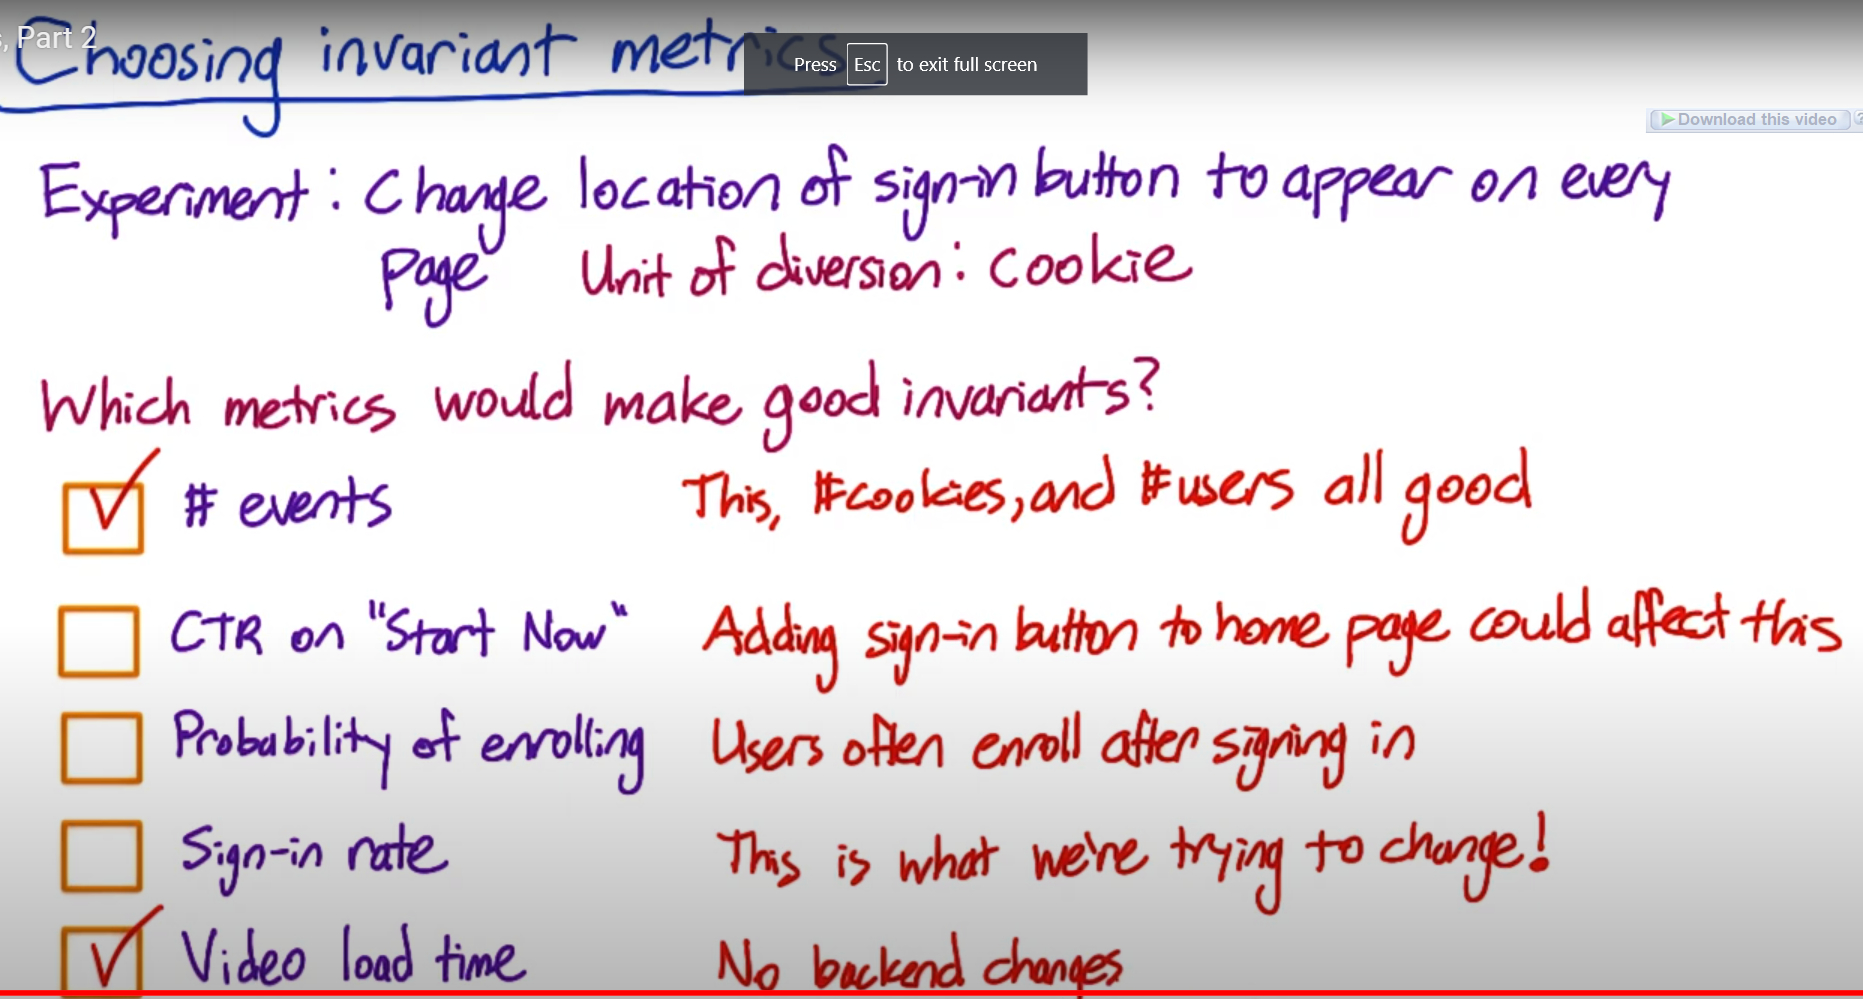 s, Part 2
Choosing invariant metrics
Press Esc to exit full screen
Download this video ?
Experiment: Change location of sign-in button to appear on every
page Unit of diversion: cookie
Which metrics would make good invariants?
# events This, #cookies, and #users all good
CTR on "Start Now" Adding sign-in button to home page could affect this
Probability of enrolling Users often enroll after signing in
Sign-in rate This is what we're trying to change!
Video load time No backend changes